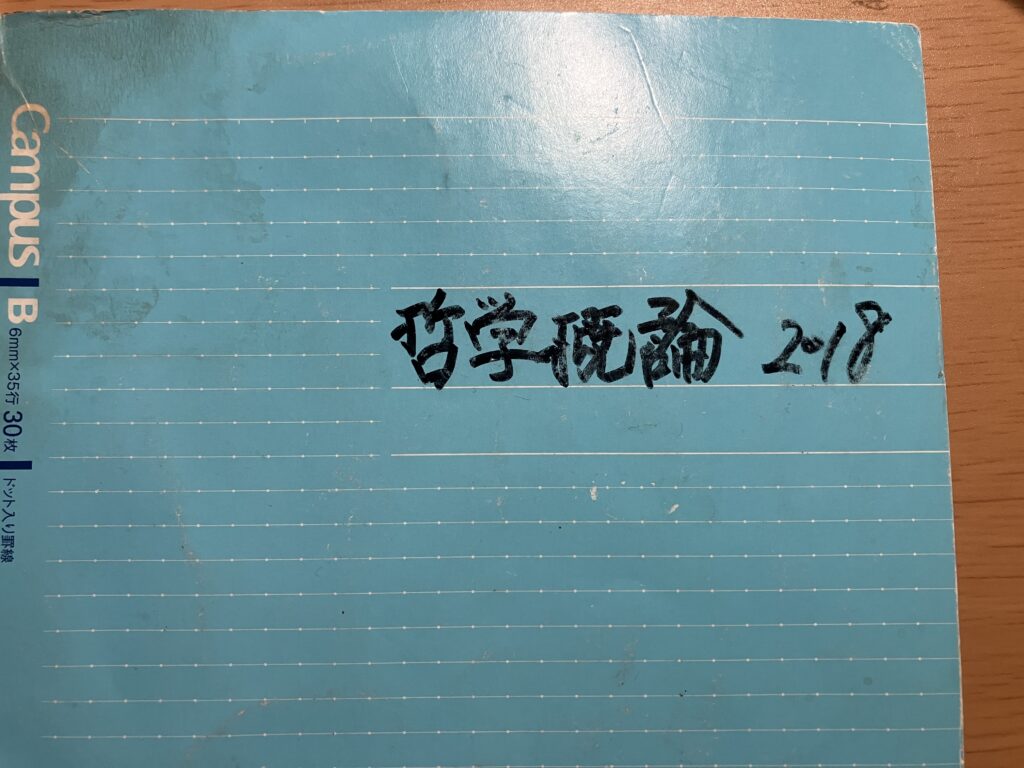 Campus B 6mm×35行 30枚 ドット入り罫線
哲学概論 2018